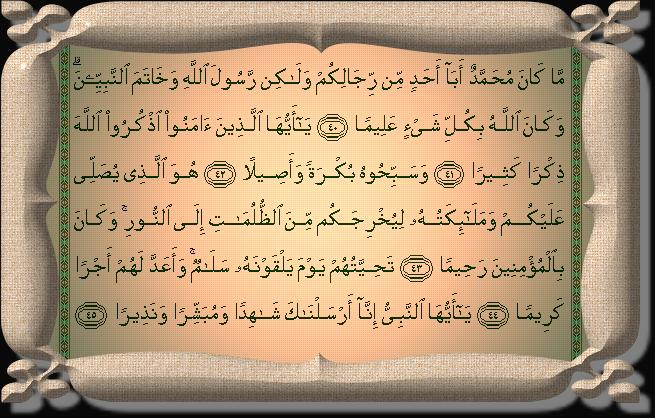 مَّا كَانَ مُحَمَّدٌ أَبَآ أَحَدٍ مِّن رِّجَالِكُمْ وَلَٰكِن رَّسُولَ ٱللَّهِ وَخَاتَمَ ٱلنَّبِيِّـۧنَ ۗ
وَكَانَ ٱللَّهُ بِكُلِّ شَىْءٍ عَلِيمًا ٤٠ يَٰٓأَيُّهَا ٱلَّذِينَ ءَامَنُوا۟ ٱذْكُرُوا۟ ٱللَّهَ
ذِكْرًا كَثِيرًا ٤١ وَسَبِّحُوهُ بُكْرَةً وَأَصِيلًا ٤٢ هُوَ ٱلَّذِى يُصَلِّى
عَلَيْكُمْ وَمَلَٰٓئِكَتُهُۥ لِيُخْرِجَكُم مِّنَ ٱلظُّلُمَٰتِ إِلَى ٱلنُّورِ ۚ وَكَانَ
بِٱلْمُؤْمِنِينَ رَحِيمًا ٤٣ تَحِيَّتُهُمْ يَوْمَ يَلْقَوْنَهُۥ سَلَٰمٌ ۚ وَأَعَدَّ لَهُمْ أَجْرًا
كَرِيمًا ٤٤ يَٰٓأَيُّهَا ٱلنَّبِىُّ إِنَّآ أَرْسَلْنَٰكَ شَٰهِدًا وَمُبَشِّرًا وَنَذِيرًا ٤٥